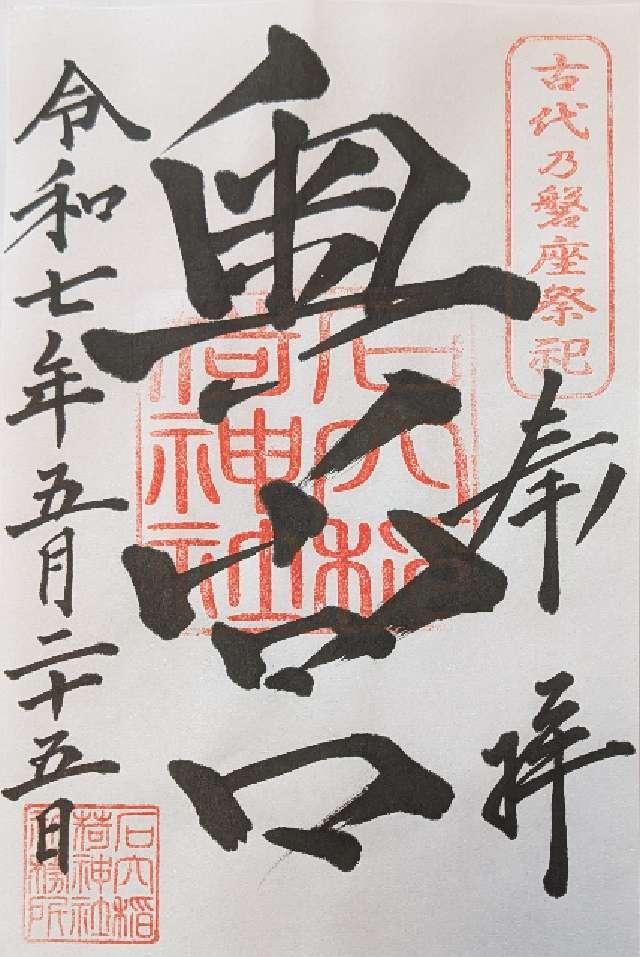 古代乃磐座祭祀
奉拝
奥宮
石穴稲荷神社
令和七年五月二十五日
石穴稲荷神社社務所